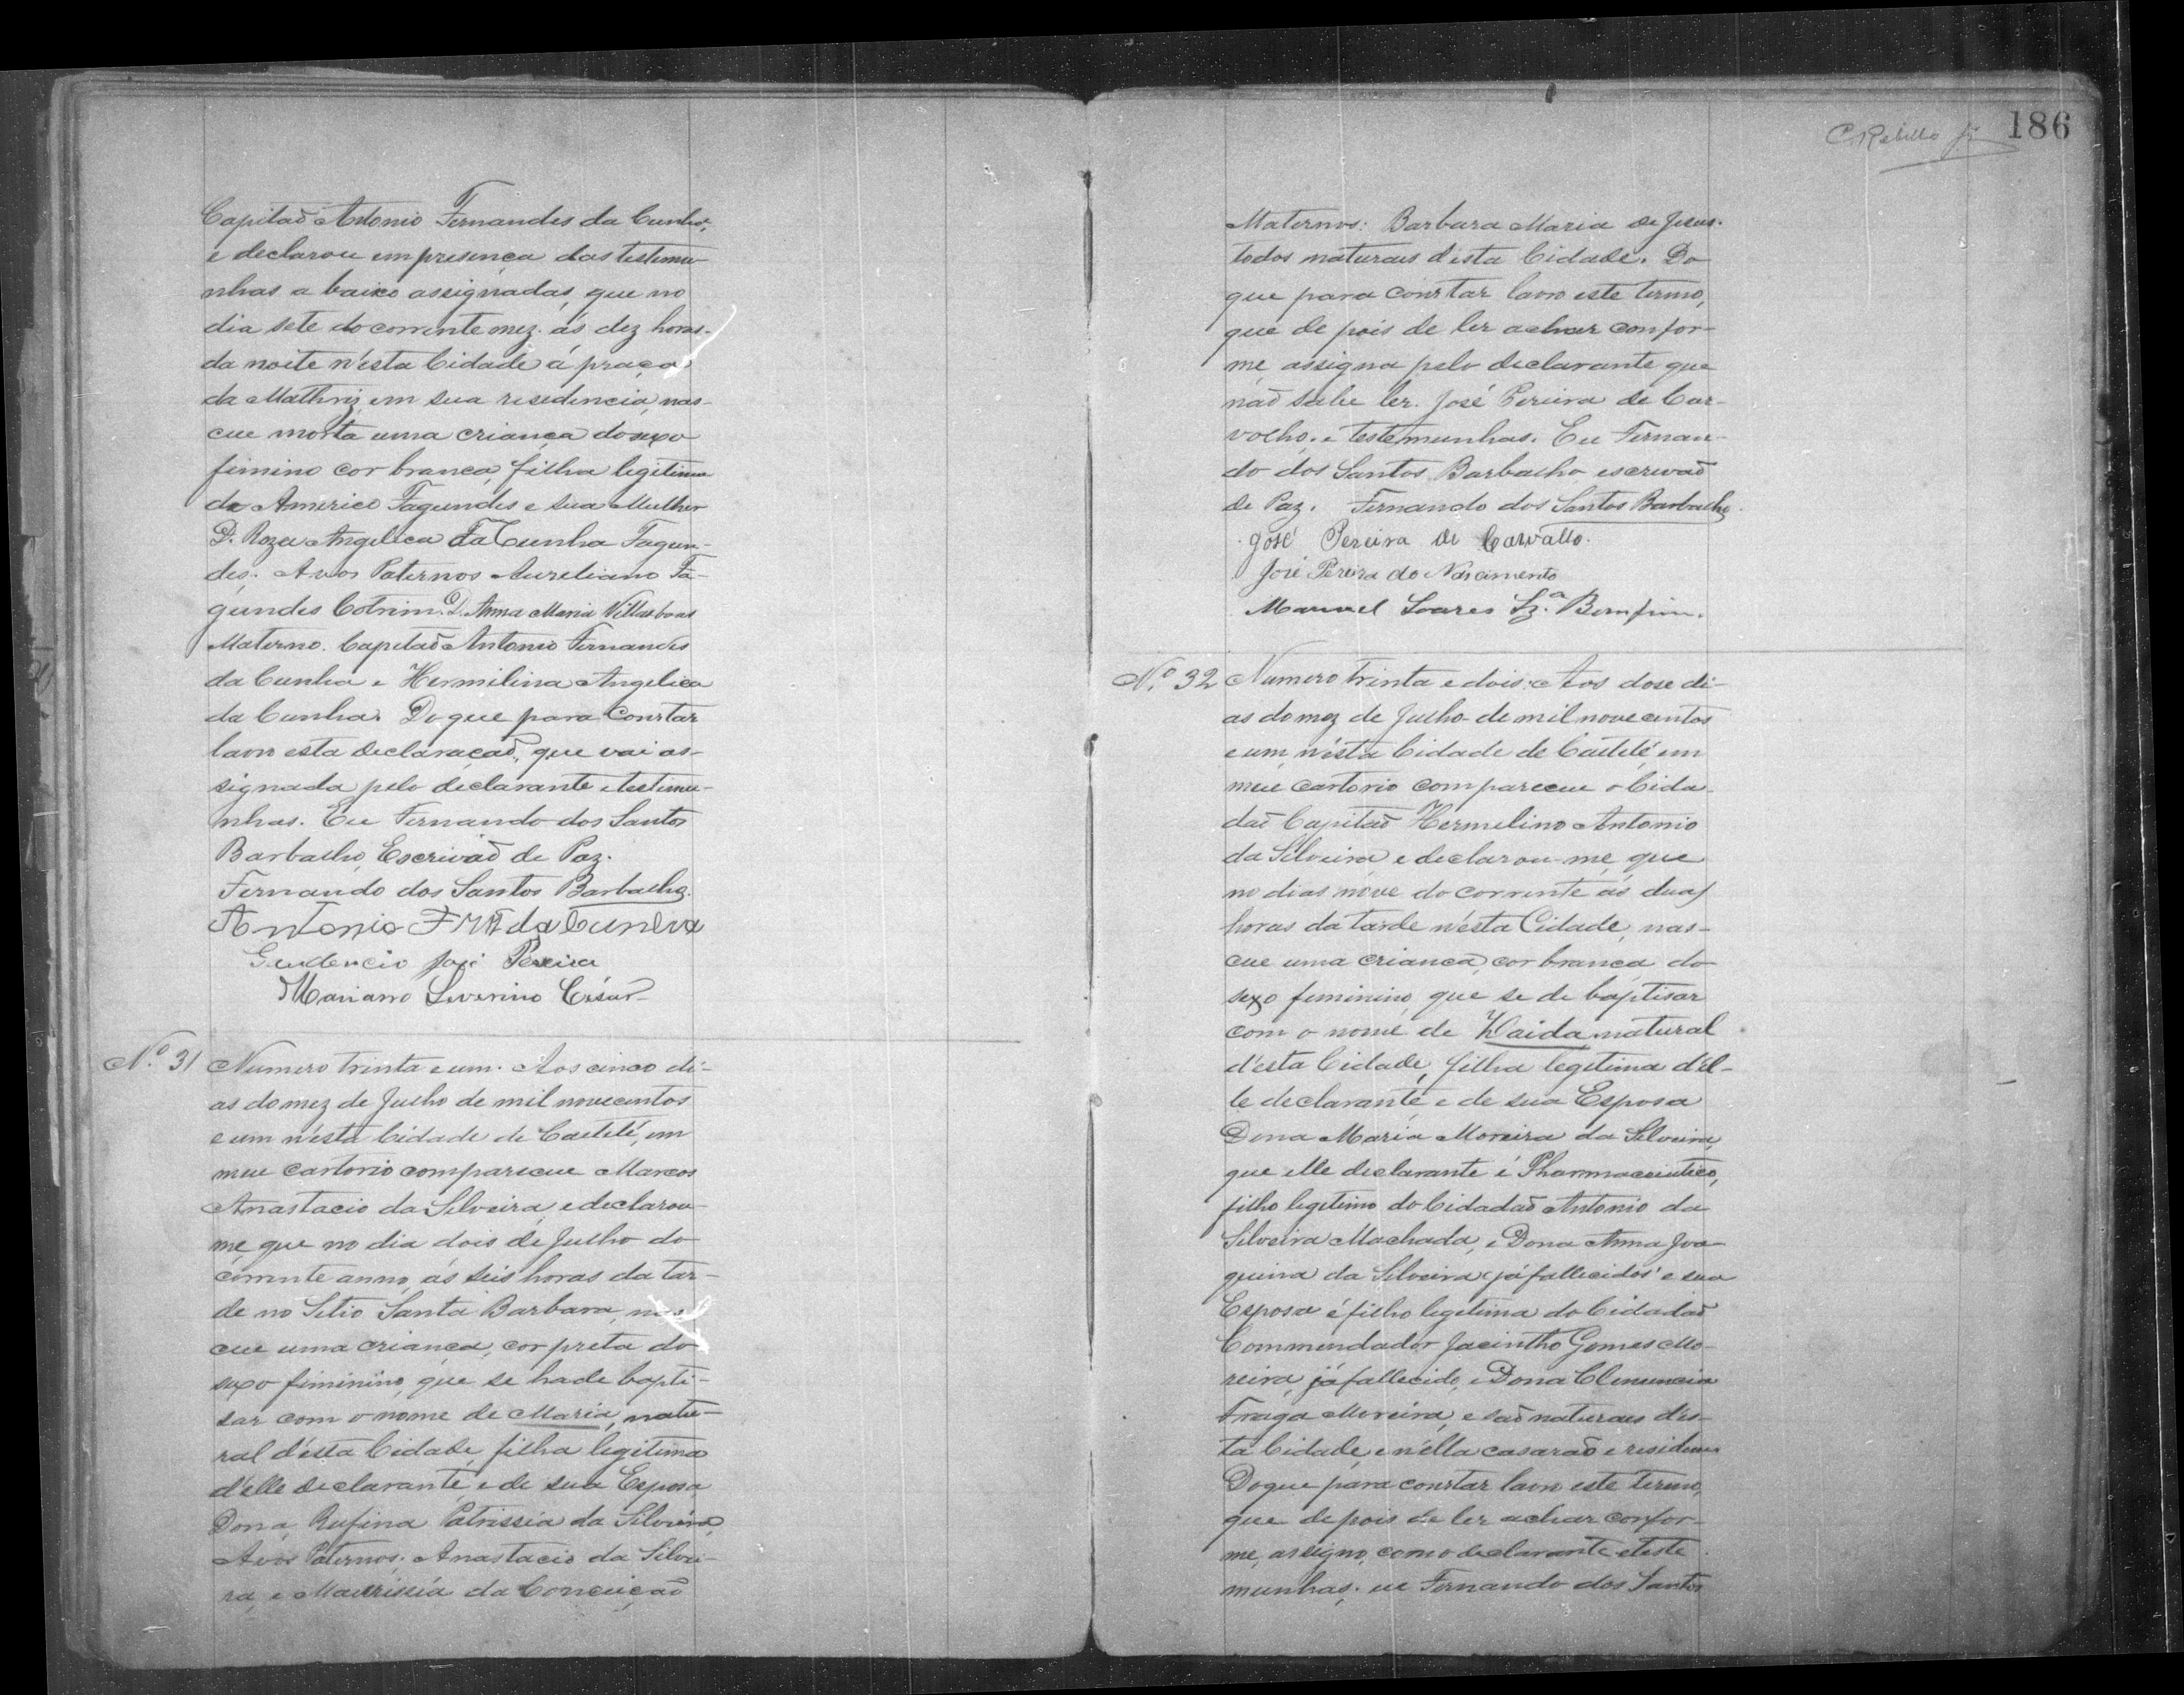 Capitaõ Antonio Fernandes da Cunha,
e declarou em presença das testemu-
nhas a baixo assignadas, que no
dia sete do corrente mez ás dez horas
da noite n'esta Cidade á praça
da Mathriz em sua residencia, nas-
ceu morta uma criança do sexo
feminino cor branca, filha legitima
de Americo Fagundes e sua Mulher
D. Roza Angelica da Cunha Fagun-
des. Avos Paternos Aureliano Fa-
gundes Cotrim. D. Anna Maria Villasboas
Materno. Capitaõ Antonio Fernandes
da Cunha e Hermilina Angelica
da Cunha. Do que para constar
lavro esta declaraçaõ, que vai as-
signada pelo declarante e testemu-
nhas. Eu Fernando dos Santos
Barbalho, Escrivaõ de Paz.
Fernando dos Santos Barbalho.
Antonio da Cunha
Gaudencio José Pereira
Mariano Severino Cesar
Nº 31 Numero trinta e um. Aos cinco di-
as do mez de Julho de mil novecentos
e um n'esta Cidade de Caeteté, em
meu cartorio compareceu Marcos
Anastacio da Silveira, e declarou-
me que no dia dois de Julho do
corrente anno, ás seis horas da tar-
de no Sitio Santa Barbara, nas-
ceu uma criança, cor preta do
sexo feminino, que se hade bapti-
sar com o nome de Maria, natu-
ral d'esta Cidade, filha legitima
d'elle declarante, e de sua Esposa
Dona Rufina Patrissia da Silveira,
Avos Paternos. Anastacio da Silvei-
ra, e da Conceiçaõ
186
Maternos: Barbara Maria de Jesus.
todos naturaes d'esta Cidade. Do
que para constar lavro este termo,
que de pois de ler achar confor-
me, assigna pelo declarante que
naõ sabe ler. José Pereira de Car-
valho, e testemunhas. Eu Fernan-
do dos Santos Barbalho escrivaõ
de Paz. Fernando dos Santos Barbalho.
José Pereira de Carvalho.
José Pereira do Nascimento
Manoel Soares Bomfim.
Nº 32 Numero trinta e dois. Aos dose di-
as do mez de Julho de mil novecentos
e um, n'esta Cidade de Caeteté, em
meu cartorio compareceu o Cida-
daõ Capitaõ Hermelino Antonio
da Silveira, e declarou-me, que
no dias nove do corrente ás duas
horas da tarde n'esta Cidade, nas-
ceu uma criança, cor branca do
sexo feminino, que se de baptisar
com o nome de Waida, natural
d'esta Cidade, filha legitima d'el-
le declarante, e de sua Esposa
Dona Maria Moreira da Silveira
que elle declarante é Pharmaceutico,
filho legitimo do Cidadaõ Antonio da
Silveira Machada, e Dona Anna Joa-
quina da Silveira já fallecidos e sua
Esposa é filho legitima do Cidadaõ
Commendador Jacintho Gomes Mo-
reira, já fallecido, e Dona
Fraga Moreira, e saõ naturaes d'es-
ta Cidade, e n'ella casaraõ e residem
Do que para constar lavro este termo,
que depois de ler achar confor-
me, assigno, com o declarante e teste
munhas. eu Fernando dos Santos